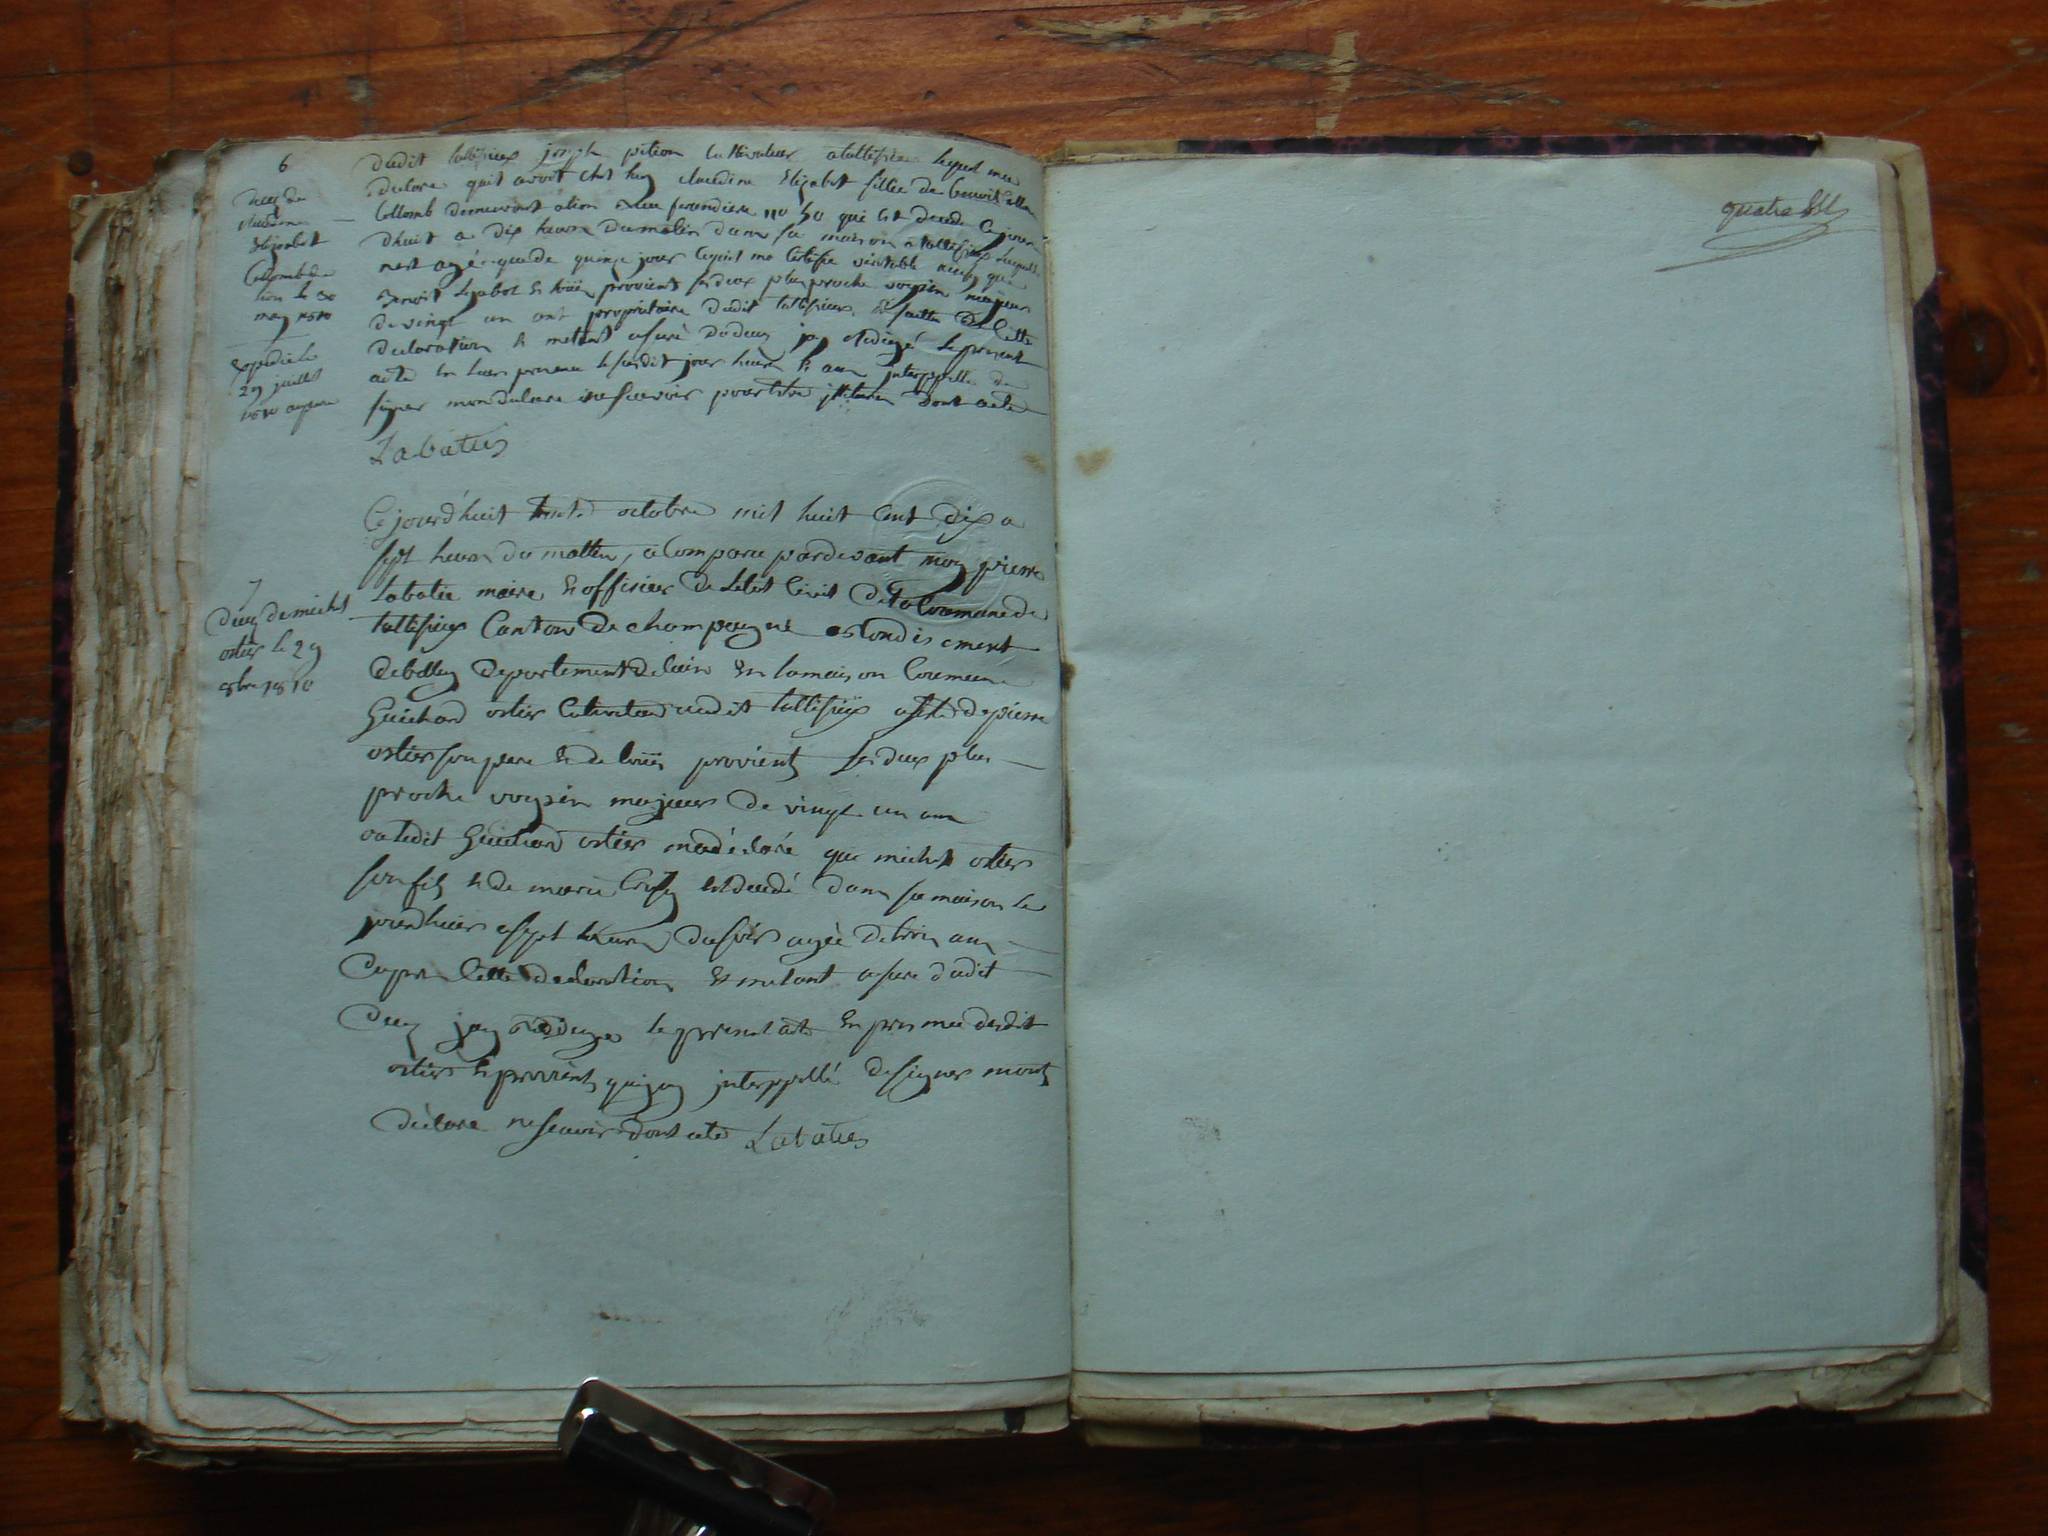 6
deces de
claudine
Elizabet
Collomb de
lion le 30
may 1810
Expedié le
29 juillet
1810
dudit tallisieux joseph pition cultivateur a tallisieu lequel ma
declare quil avoit chet luy claudine Elizabet fillie de benoit
Collomb demeurant alion rue ferandiere no 50 qui est decede
dhuit a dix heures du matin dans sa maison a tallisieux
nest agé que de quinze jours lequel ma certifie veritable ainsy que
benoit Lizabet et loüis provient les deux plus proche voysin majeurs
de vingt un ant propriétaire dudit tallisieux, et suitte de cette
declaration et metant asuré du deces jay redigé le present
acte en leur presence le susdit jour heure et an interppellé de
signer mon declare ne scavoir pour etre illiteré dont acte
Labatie
Ce jourdhuit trente octobre mil huit cent dix a
sept heures du mattin, a comparu pardevant moy pierre
Labatie maire et officier de Letat Civil de la Commune de
tallisieux Canton de champagne arondisement
de belley departement de lain En la maison Commune
Guichard ostier Cultivateur audit tallisieux assisté de pierre
ostier son pere et de loüis provient Les deux plus
proche voysin majeurs de vingt un ans
ou ledit Guichard ostier ma déclaré que michel ostier
son fils et de marie est decedé dans sa maison le
jourdhier a sept heures du soir agée de trois ans
apres Cette declaration Et metant asuré dudit
deces jay redigé le present acte En presence desdit
ostier et provient que jay interppellé de signer mont
déclare ne scavoir dont acte Labatie
7
deces de michel
ostier le 29
8bre 1810
quatre